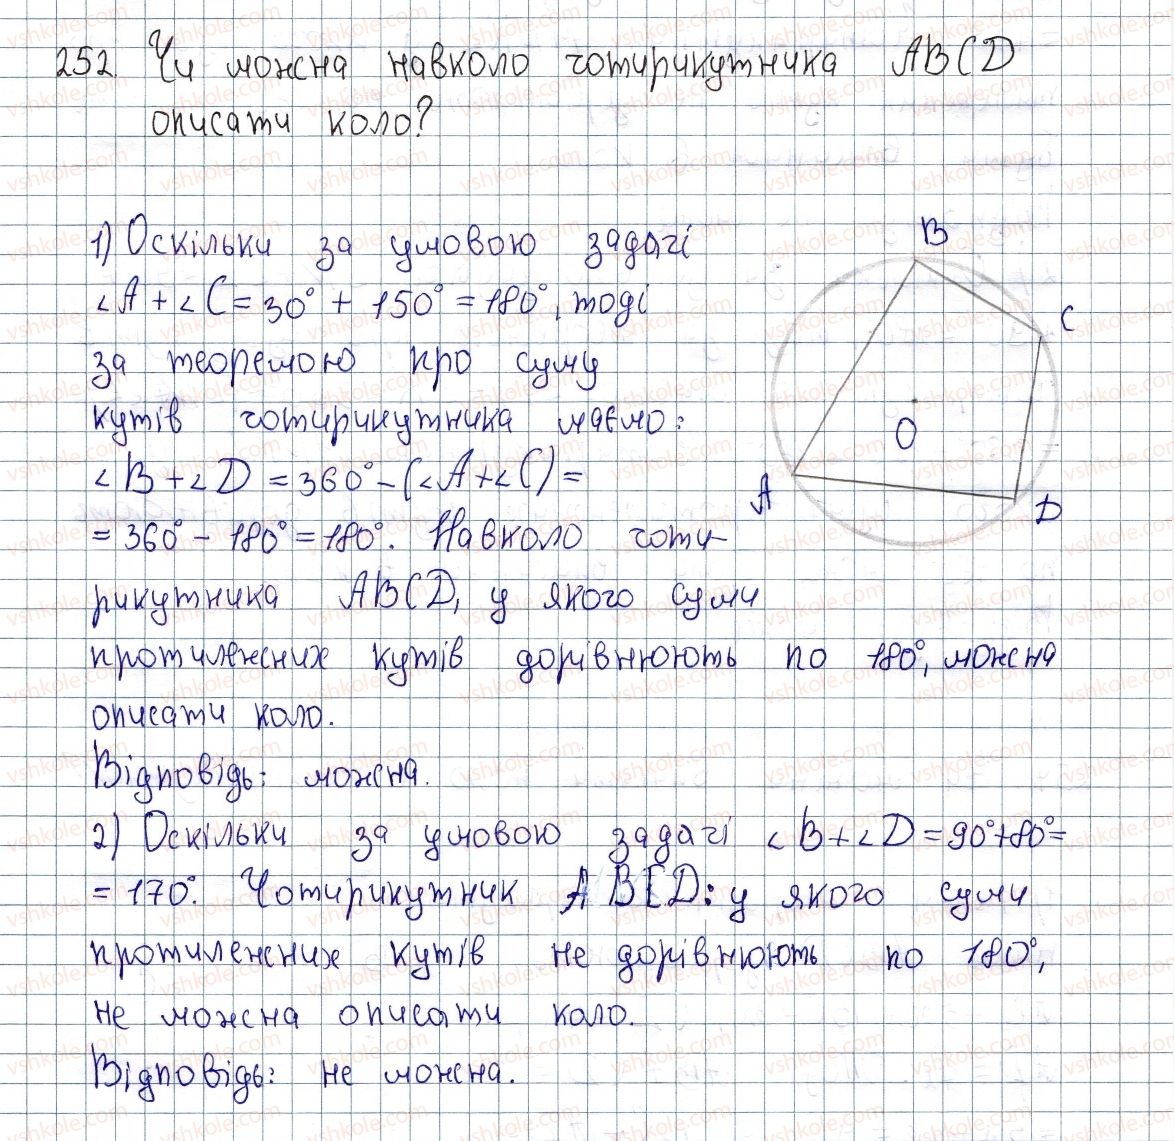 252. Чи можна навколо чотирикутника ABCD
описати коло?
1) Оскільки за умовою задачі
∠A + ∠C = 30° + 150° = 180°, тоді
за теоремою про суму
кутів чотирикутника маємо:
∠B + ∠D = 360° - (∠A + ∠C) =
= 360° - 180° = 180°. Навколо чоти-
рикутника ABCD, у якого суми
протилежних кутів дорівнюють по 180°, можна
описати коло.
Відповідь: можна.
2) Оскільки за умовою задачі ∠B + ∠D = 90° + 80° =
= 170°. Чотирикутник ABCD: у якого суми
протилежних кутів не дорівнюють по 180°,
не можна описати коло.
Відповідь: не можна.
B
C
O
A
D
vshkole.com